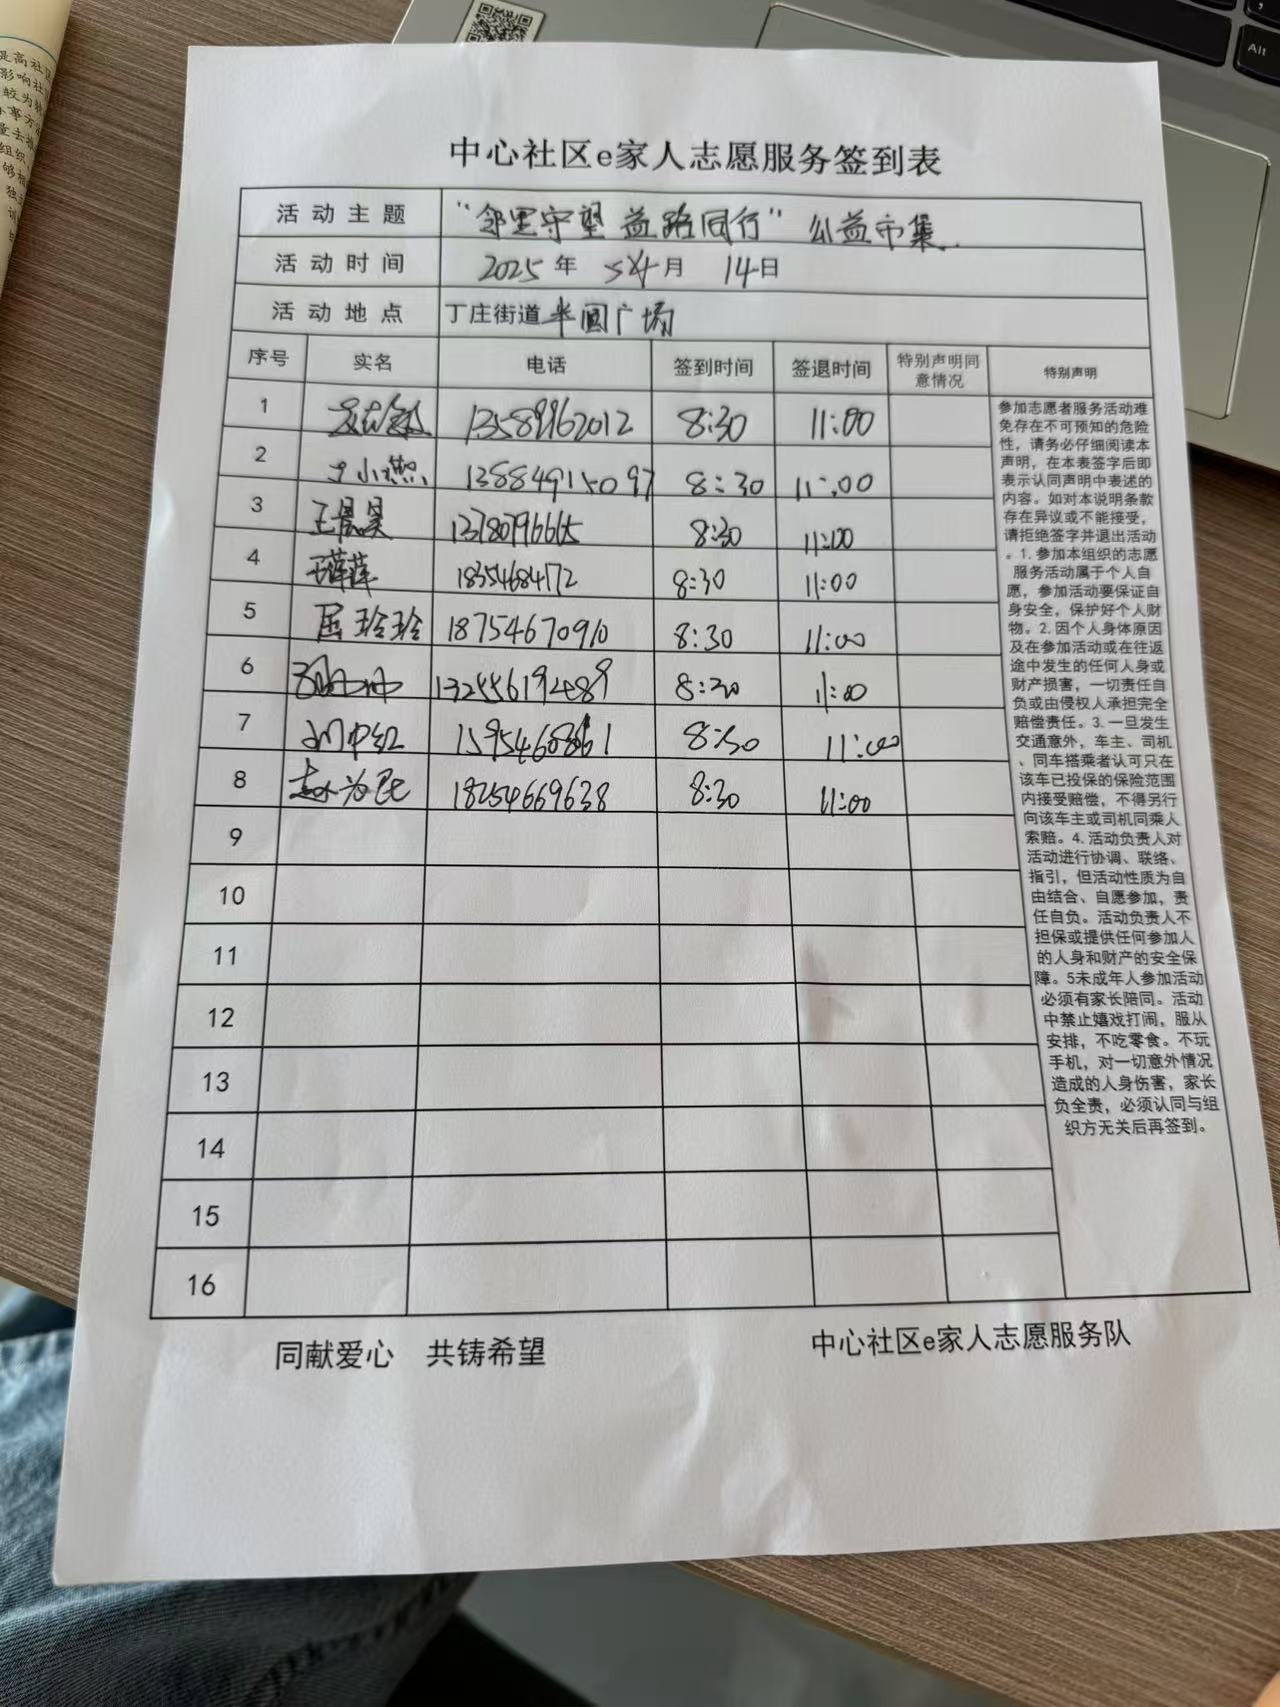 Alt
中心社区e家人志愿服务签到表
活动主题 “邻里守望 益路同行” 公益市集
活动时间 2025年 月 14日
活动地点 丁庄街道半圆广场
序号 实名 电话 签到时间 签退时间 特别声明同意情况 特别声明
1 13589962012 8:30 11:00
2 小燕 13884915097 8:30 11:00
3 王晨昊 8:30 11:00
4 18354684172 8:30 11:00
5 屈玲玲 18754670910 8:30 11:00
6 8:30 11:00
7 8:30 11:00
8 赵为民 18254669638 8:30 11:00
9
10
11
12
13
14
15
16
参加志愿者服务活动难
免存在不可预知的危险
性，请务必仔细阅读本
声明，在本表签字后即
表示认同声明中表述的
内容。如对本说明条款
存在异议或不能接受，
请拒绝签字并退出活动
。1.参加本组织的志愿
服务活动属于个人自
愿，参加活动要保证自
身安全，保护好个人财
物。2.因个人身体原因
及在参加活动或在往返
途中发生的任何人身或
财产损害，一切责任自
负或由侵权人承担完全
赔偿责任。3.一旦发生
交通意外，车主、司机
、同车搭乘者认可只在
该车已投保的保险范围
内接受赔偿，不得另行
向该车主或司机同乘人
索赔。4.活动负责人对
活动进行协调、联络、
指引，但活动性质为自
由结合、自愿参加，责
任自负。活动负责人不
担保或提供任何参加人
的人身和财产的安全保
障。5未成年人参加活动
必须有家长陪同。活动
中禁止嬉戏打闹，服从
安排，不吃零食。不玩
手机，对一切意外情况
造成的人身伤害，家长
负全责，必须认同与组
织方无关后再签到。
同献爱心 共铸希望 中心社区e家人志愿服务队